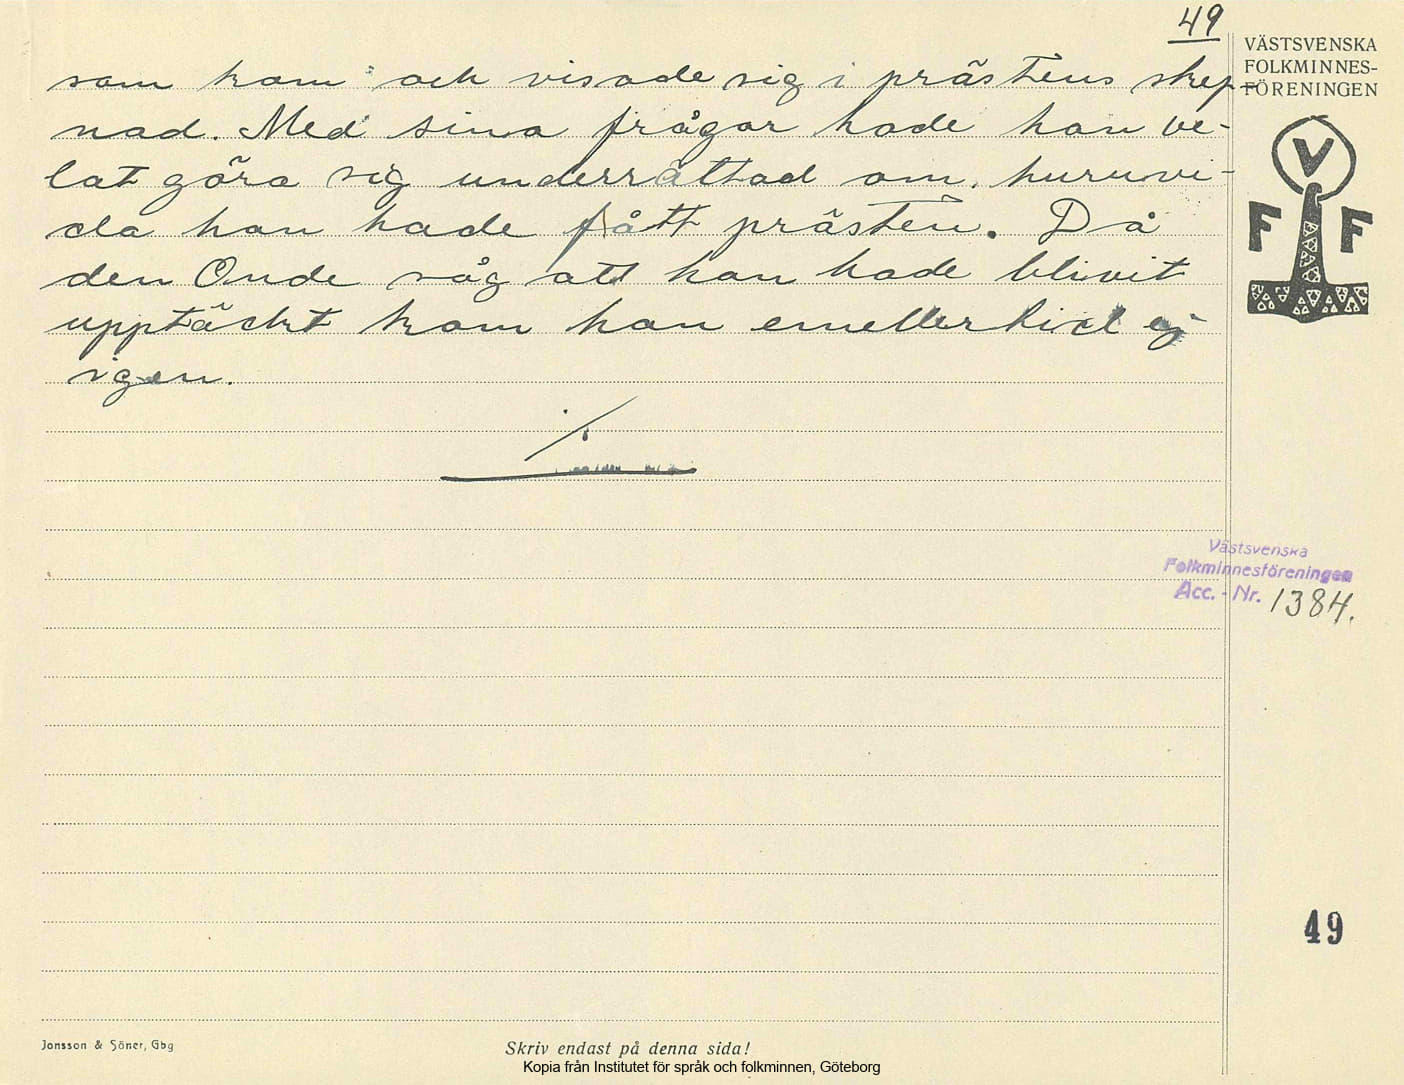 49
VÄSTSVENSKA
FOLKMINNES-
FÖRENINGEN
som kom och visade sig i prästens skep-
nad. Med sina frågor hade han ve-
lat göra sig underrättad om, huruvi-
da han hade fått prästen. Då
den Onde såg att han hade blivit
upptäckt kom han emellertid ej
igen.
V
F F
Västsvenska
Folkminnesföreningen
Acc. - Nr. 1384.
49
Jonsson & Söner, Gbg
Skriv endast på denna sida!
Kopia från Institutet för språk och folkminnen, Göteborg